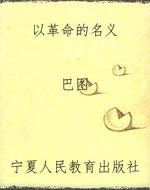 以革命的名义
巴图
宁夏人民教育出版社